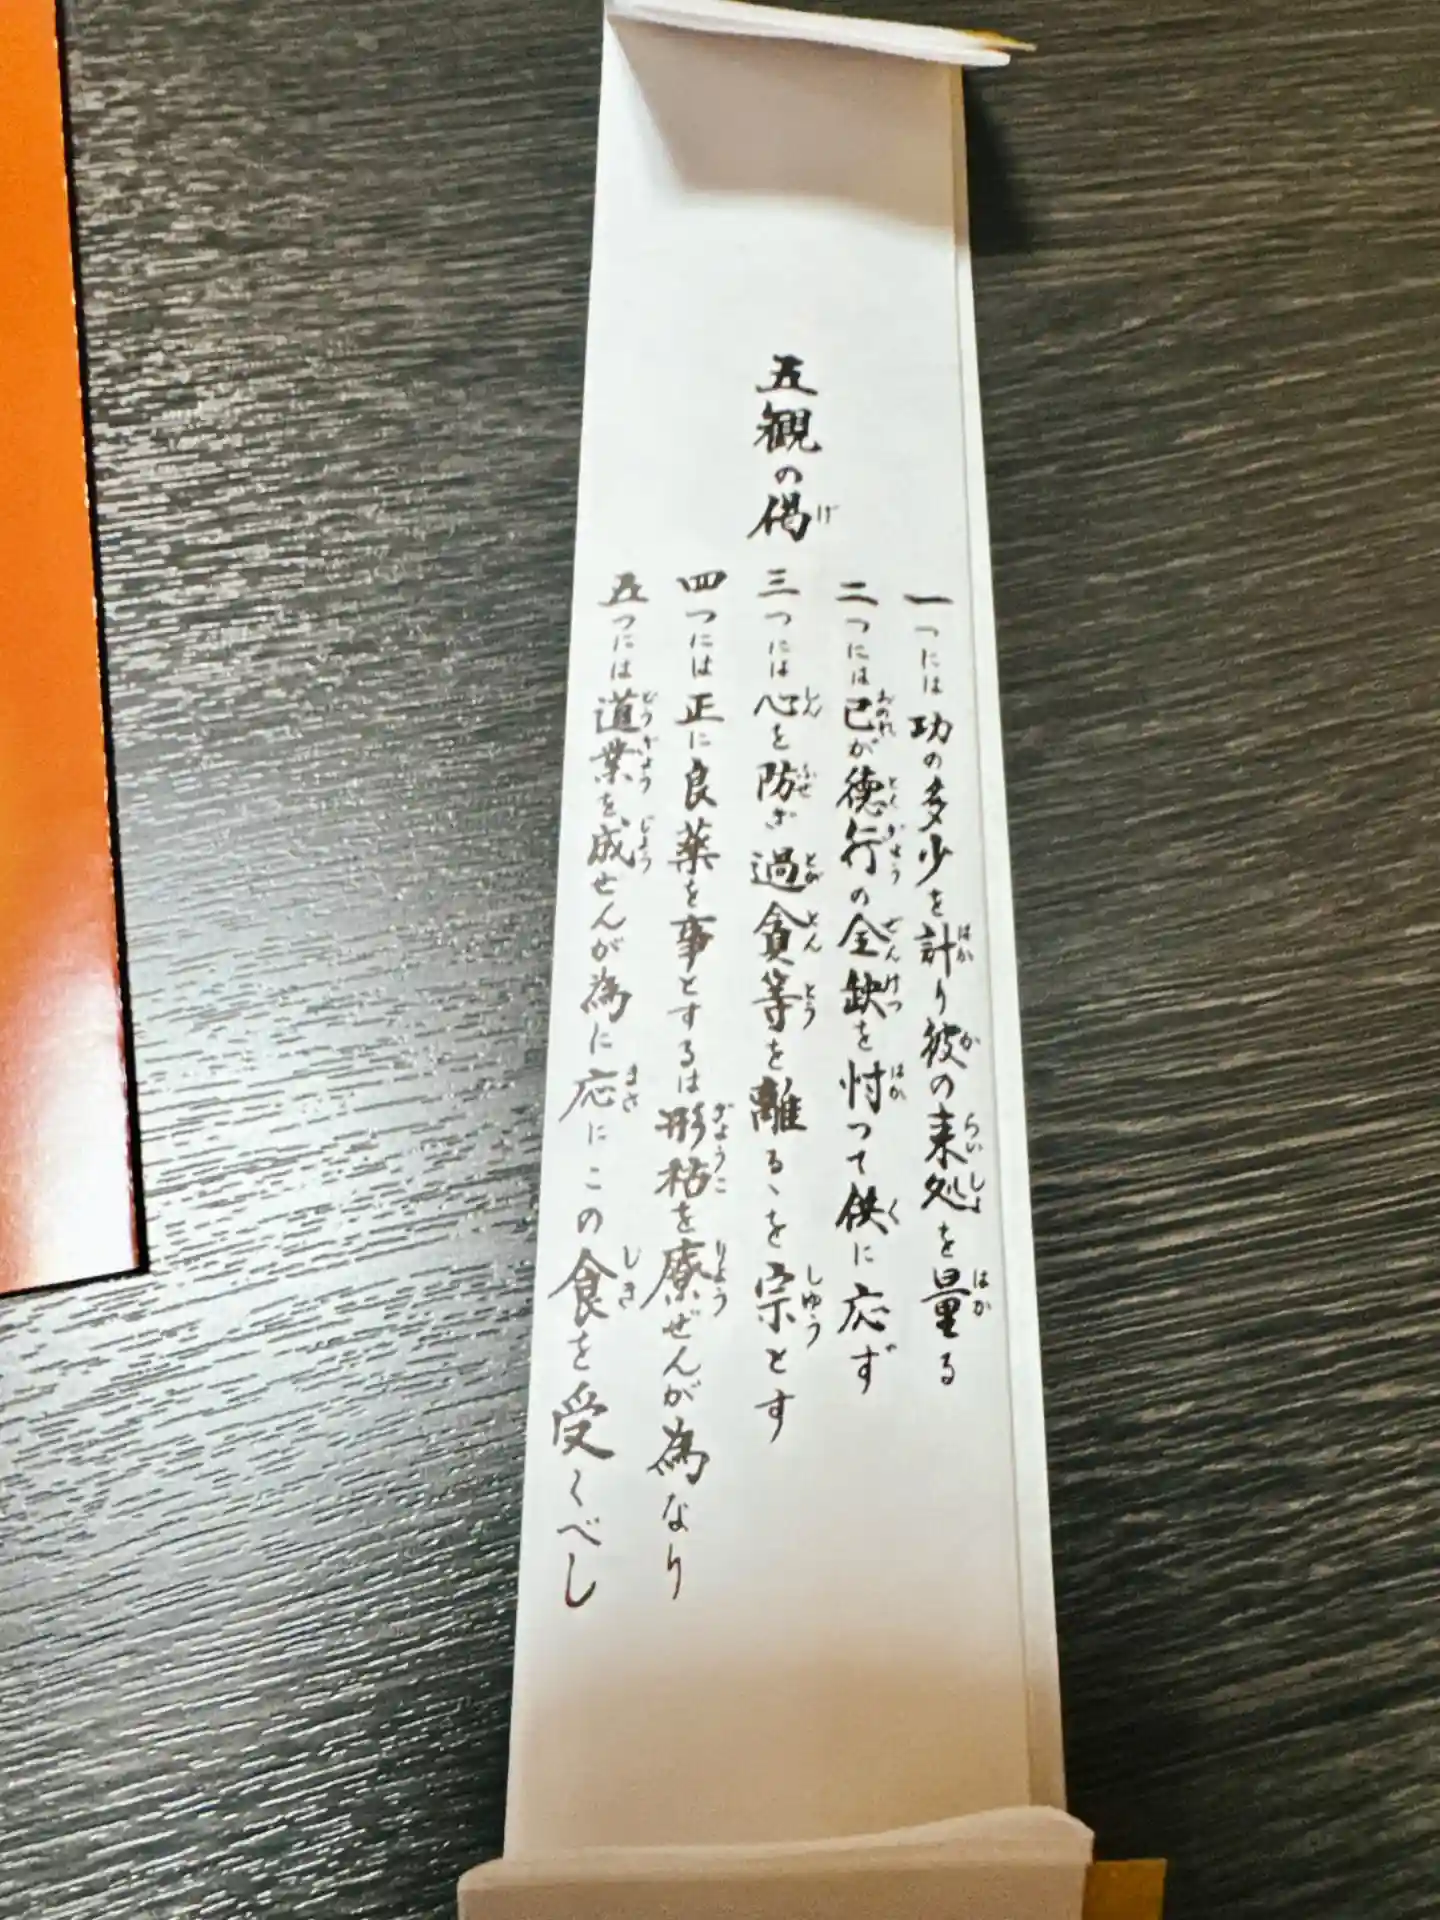 五観の偈
一つには功の多少を計り彼の来処を量る
二つには己が徳行の全缺を忖って供に応ず
三つには心を防ぎ過貪等を離るゝを宗とす
四つには正に良薬を事とするは形枯を療ぜんが為なり
五つには道業を成せんが為に応にこの食を受くべし